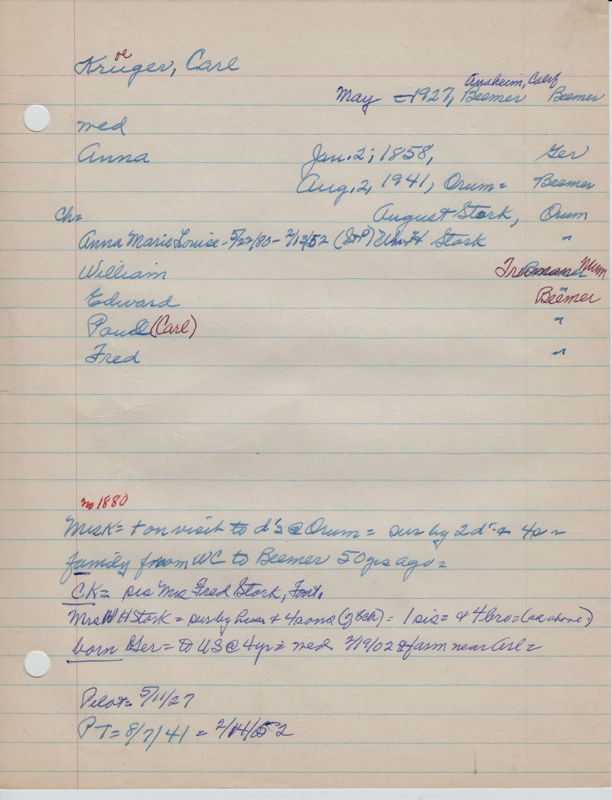 oe
Krüger, Carl
Anaheim, Calif
May - 1927, Beemer Beemer
med
Anna Jan. 2, 1858, Ger
Aug. 2, 1941, Orum = Beemer
Ch= August Stork, Orum
Anna Marie Louise - 5/22/80 - 2/13/52 (StP) Wm H Stork "
William Truman Minn
Edward Beemer
Paul (Carl) "
Fred "
m 1880
Mrs K = + on visit to d's @ Orum = sur by 2 d's + 4s =
family from WC to Beemer 50 yrs ago =
CK = sis Mrs Fred Stork, Font.
Mrs W H Stork = sur by hus + 4 sons = 1 sis = + 4 bro = (as above)
born Ger = to US @ 4 yr = med 2/19/02 + farm near Arl =
Pilot = 5/11/27
PT = 8/7/41 = 2/14/52